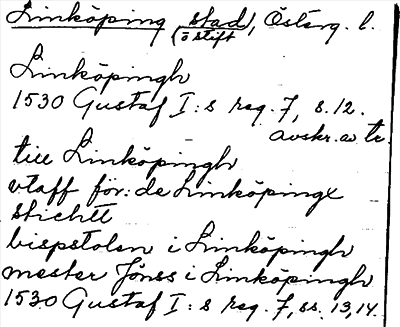 Linköping (stad), Östérg. l.
(ö stift
Linköpingh
1530 Gustaf I:s reg. 7, s. 12.
avskr. av tr.
till Linköpingh
vtaff för:de Linköpingx
stichtt
bispstolen i Linköpingh
mester Jönss i Linköpingh
1530 Gustaf I:s reg. 7, ss. 13, 14.